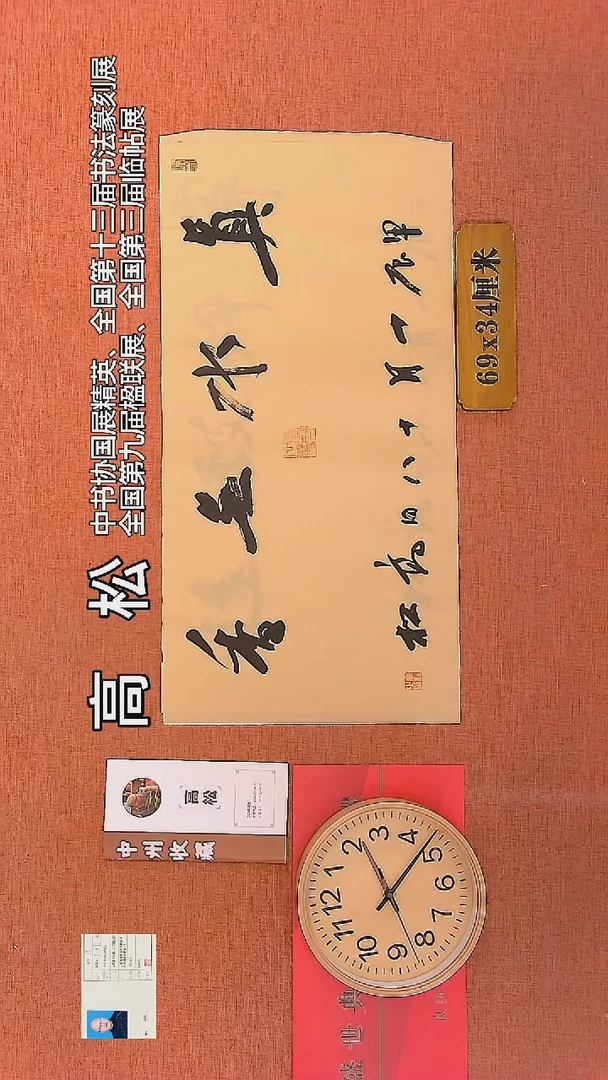 高 松
中书协国展精英、全国第十三届书法篆刻展
全国第九届楹联展、全国第三届临帖展
真水無香
甲辰一月十八日高松
69x34厘米
高松
中州收藏
盛世典
12
1
2
3
4
5
6
7
8
9
10
11